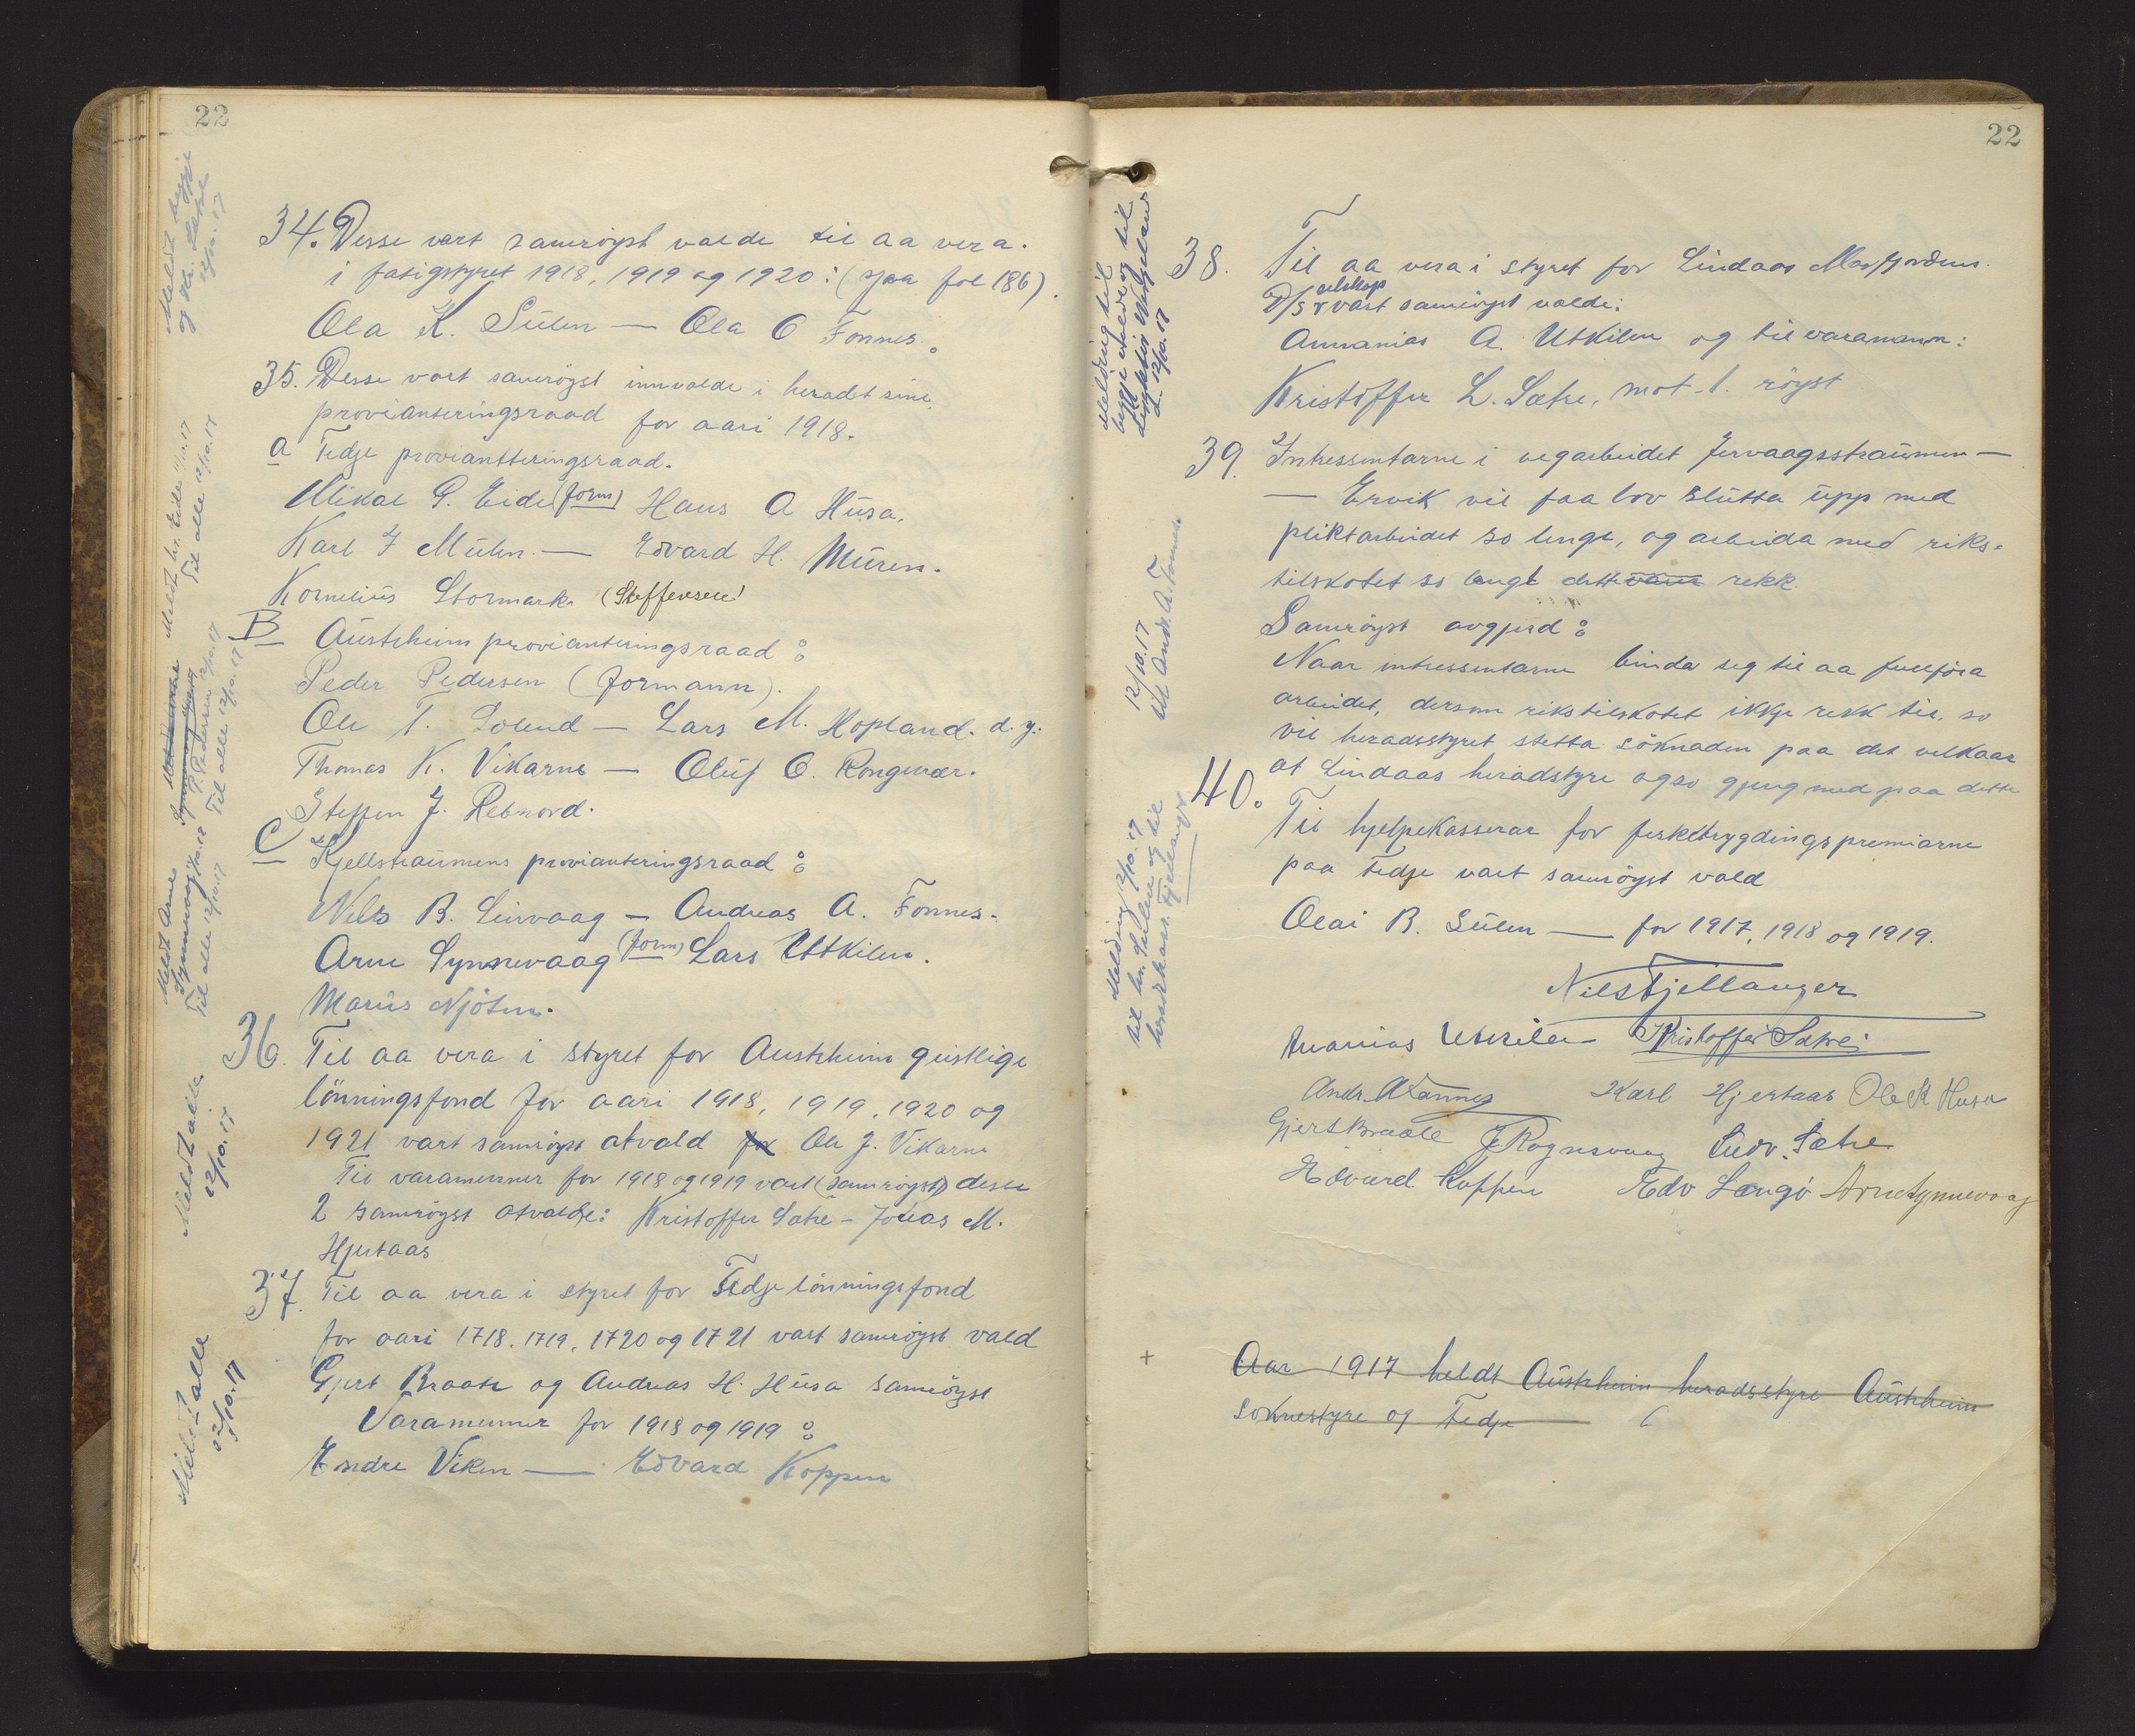 22
34. Desse vart samröyst valde til aa vera
i fatigstyret 1918, 1919 og 1920: (sjaa fol 186).
Ola K. Sülen — Ola O Fonnes.
35. Desse vart samröyst innvalde i heradet sine
provianteringsraad for aari 1918.
a Fedje proviantteringsraad.
Mikal P. Eide (form) Hans A Hüsa.
Karl J Mülen — Edvard H. Müren.
Kornelius Stormark (Steffensen)
B Aüstrheim provianteringsraad:
Peder Pedersen (formann).
Ole T. Solend — Lars M. Hopland. d.y.:
Thomas K. Vikarne — Olüf O. Rongevær.
Steffen J. Rebnord.
C Kjellstraumens provianteringsraad:
Nils B. Leirvaag — Andreas A. Fonnes.
Arne Synnevaag (form) Lars Utkilen.
Mariüs Njöten.
36. Til aa vera i styret for Austrheim geistlige
lönningsfond for aari 1918, 1919, 1920 og
1921 vart samröyst atvald for Ole J. Vikarne
Til varamenner for 1918 og 1919 vart (samröyst) desse
2 samröyst atvalde: Kristoffer Sætre - Jonas M.
Hjertaas
37. Til aa vera i styret for Fedje lönningsfond
for aari 1718, 1719, 1720 og 1721 vart samröyst vald
Gjert Braate og Andreas H. Hüsa samröyst
Varamenner for 1918 og 1919:
Endre Viken — Edvard Koppen
Meldt alle
12/10.17
Meldt alle
12/10.17
Meldt Arne
Synnevaag 12/10.17
Til alle 12/10.17
P. Pedersen 12/10.17
Til alle 12/10.17
Meldt hr. Eide 12/10.17
Til alle 12/10.17
22
38. Til aa vera i styret for Lindaas Masfjordens
D/S selskap vart samröyst valde:
Annanias A. Utkilen og til varamann:
Kristoffer L. Sætre, mot 1. röyst
39. Intressentarne i vegarbeidet Jervaagsstraümen —
— Ervik vil faa lov slütta üpp med
pliktarbeidet so lenge, og arbeida med riks-
tilskotet so langt dette rekk.
Samröyst avgjerd:
Naar intressentarne binda seg til aa fullföra
arbeidet, dersom rikstilskotet ikkje rekk til, so
vil heradsstyret stetta söknaden paa det velkaar
at Lindaas heradstyre ogso gjeng med paa dette
40. Til hjelpekasserar for fisketrygdingspremiarne
paa Fedje vart samröyst vald
Olai B. Sülen — for 1917, 1918 og 1919.
Nils Fjellanger
Ananias Utkilen Kristoffer Sætre
Andr. A Fonnes Karl Hjertaas Ole K Husa
Gjert Braate J Rognsvaag Ludv. Sætre
Edvard Koppen Edv Langö Arne Synnevaag
Aar 1917 heldt Aüstrheim heradsstyre Aüstrheim
soknestyre og Fedje
12/10.17
Utk Andr. A. Fonnes
Melding 12/10.17
til hr. Sulen og til
heradskass. Fjellanger